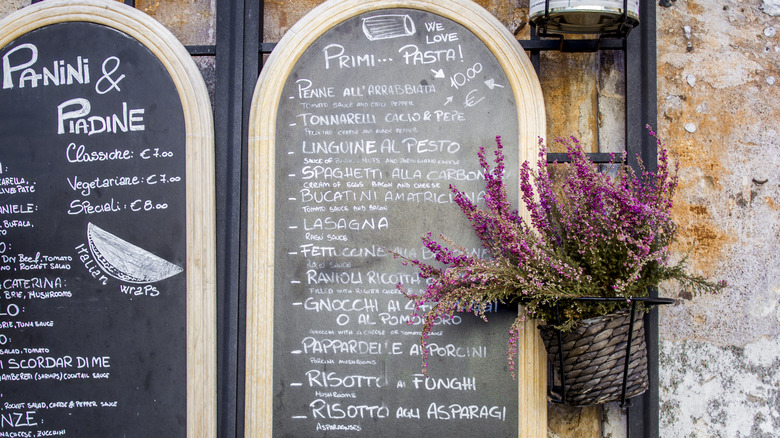 Panini &
Piadine
Classiche: €7.00
Vegetariane: €7.00
Speciali: €8.00
Italian
wraps
Daniele:
Bufala
Dry Beef, Tomato
& Rocket Salad
Caterina:
Brie, Mushrooms
Brie, Tuna Sauce
Salad, Tomato
i Scordar di me
Gamberetti (Shrimps) Cocktail Sauce
Rocket Salad, Cheese & Pepper Sauce
We
Love
Primi... Pasta!
10.00
€
- Penne all'Arrabbiata
Tomato sauce and chili pepper
- Tonnarelli Cacio & Pepe
Pecorino cheese and black pepper
- Linguine al Pesto
Sauce of Basil, nuts and parmesan cheese
- Spaghetti alla Carbonara
Cream of eggs bacon and cheese
- Bucatini Amatriciana
Tomato sauce and bacon
- Lasagna
Ragù sauce
- Fettuccine
Ragù sauce
- Ravioli Ricotta
Filled with ricotta cheese
- Gnocchi ai
o al Pomodoro
Gnocchi with
- Pappardelle ai Porcini
Porcini mushrooms
- Risotto ai Funghi
Mushrooms
- Risotto agli Asparagi
Asparagus